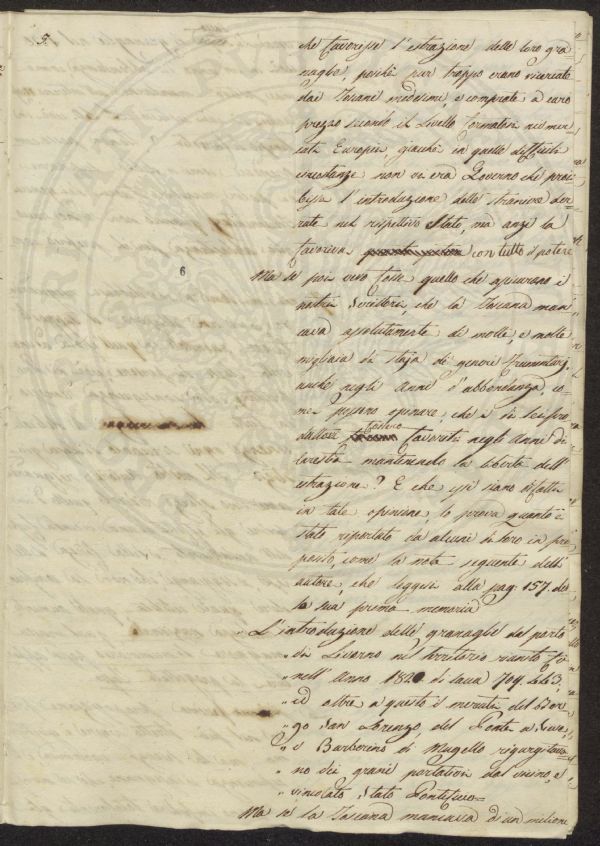 5.
che favorisse l'estrazione delle loro gra=
naglie, poichè pur troppo erano ricercate
dai Toscani medesimi, e comprate a caro
prezzo secondo il livello formatosi nei mer=
cati Europei, giacchè in quelle difficili
circostanze non vi era Governo che proi=
bisse l'introduzione delle straniere der=
rate nel rispettivo Stato, ma anzi la
favoriva con tutto il potere
6
Ma se poi vero fosse quello che asserirono i
nostri Scrittori, che la Toscana man
cava assolutamente di molte, e molte
migliaia di staja di genere frumentarj
anche negli Anni d'abbondanza, co=
me possono opinare, che i di lei pro
duttori fossero favoriti negli Anni di
carestia mantenendo la libertà dell'
estrazione? E che essi siano difatti
in tale opinione, lo prova quanto è
stato riportato da alcuni di loro in pro
posito, come la nota seguente dell'
autore, che leggesi alla pag. 157. del
la sua prima memoria
" L'introduzione delle granaglie dal porto
" di Livorno nel territorio riunito fù
" nell'Anno 1820 di sacca 709.
" ed oltre a questo il mercato del Bor
" go San Lorenzo, del Ponte a Sieve
" e Barberino di Mugello rigurgitava
" no dei grani portativi dal vicino, e
" vincolato Stato Pontificio=
Ma se la Toscana mancava d'un milione